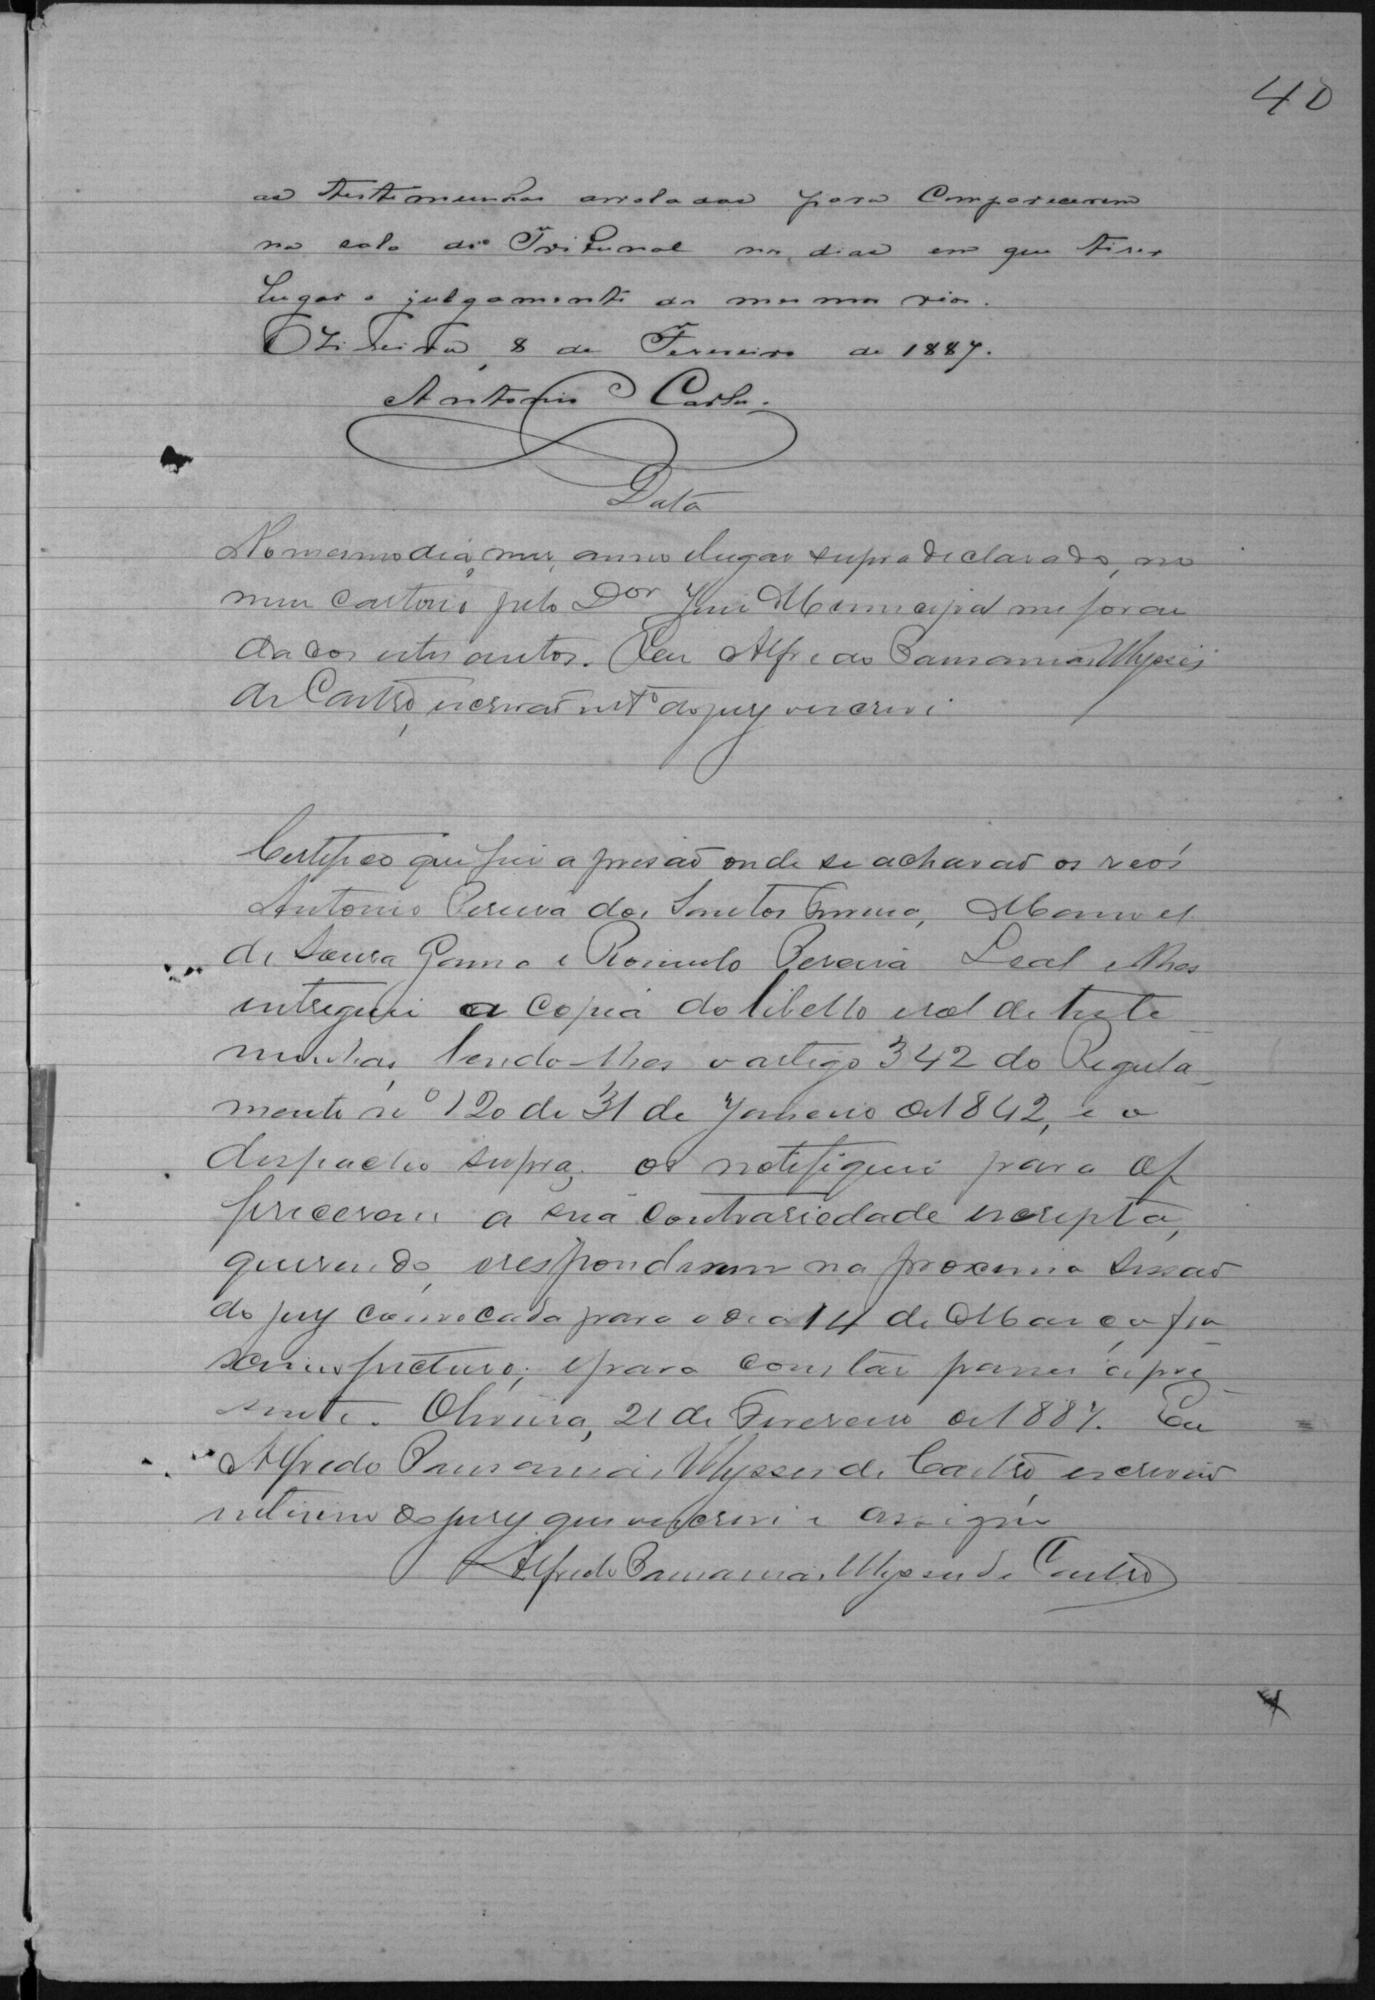 40
as testemunhas arroladas para comparecerem
na sala do Tribunal no dia em que tiver
lugar o julgamento do mesmo réo.
Oliveira, 8 de Fevereiro de 1887.
Antonio Carlos.
Data
No mesmo dia, mez, anno e lugar supra declarado, no
meu cartorio pelo Dor Juiz Municipal me forão
dados estes autos. Eu Alfredo Pausanias Ulysses
de Castro, escrivão intº do jury o escrevi
Certifico que fui a prisão onde se achavão os reos
Antonio Pereira dos Santos, Manoel
de Sousa Gama e Romulo Pereira Leal e lhes
entreguei a copia do libello e rol de teste
munhas, lendo-lhes o artigo 342 do Regula-
mento nº 120 de 31 de Janeiro de 1842, e o
despacho supra, os notifiquei para of
ferecerem a sua contrariedade escripta,
querendo, e responderem na proxima sessão
do jury convocada para o dia 14 de Março pro
ximo futuro; e para constar passei a pre-
sente. Oliveira, 21 de Fevereiro de 1887. Eu
Alfredo Pausanias Ulysses de Castro, escrivão
interino do jury que o escrevi e assigno
Alfredo Pausanias Ulysses de Castro